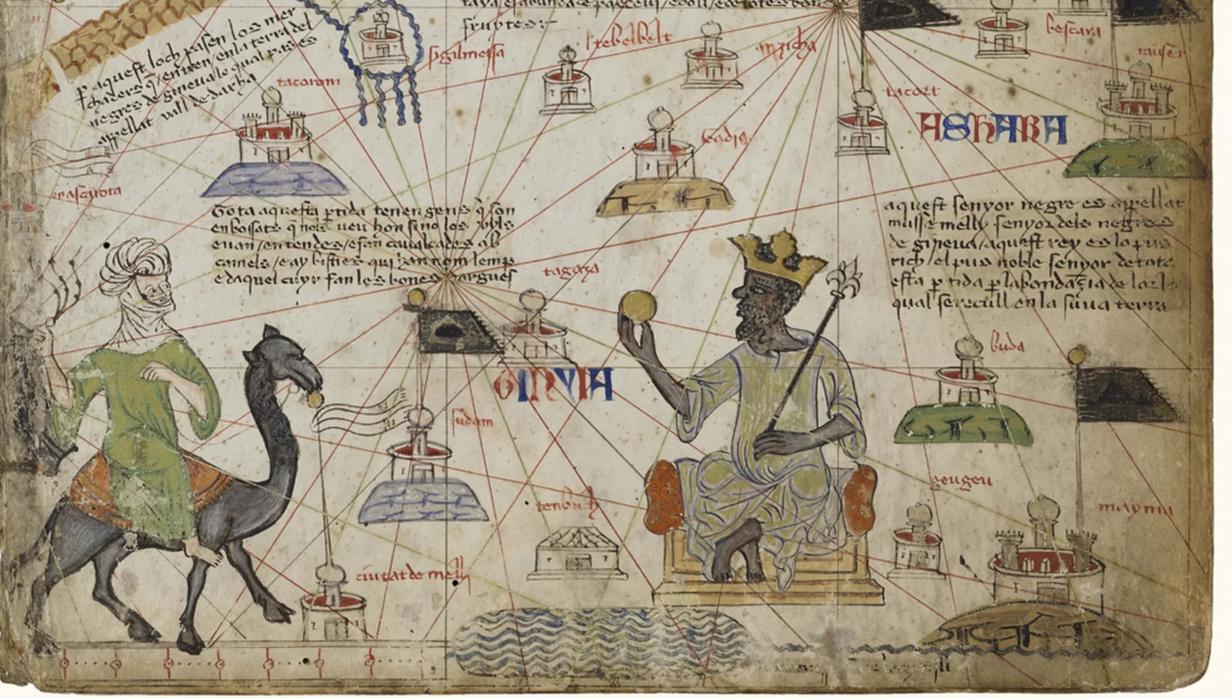 fruytes
p aquest loch pasen los mer
chaders q̄ entren en la terra del
negres de gineua lo qual pas es
appellat vall de darha
tacorom
sigilmessa
tebelbelt
anzicha
bescara
tacort
ASHARA
tagaza
Tota aquesta ptida tenen gens q̄ son
enbossats q̄ nols veu hom sino los vyls
e van en tendes e fan caualcades ab
camels e ay bisties qui han nom lemp
e daquel cuyr fan les bones dargues
aquest senyor negre es appellat
musse melly senyor dels negres
de gineua aquest rey es lo pus
rich el pus noble senyor de tota
esta ptida p labondançia de lor lo
qual se recull en la suua terra
GINYIA
sudam
buda
tenbuch
geugeu
mayma
ciutat de melly